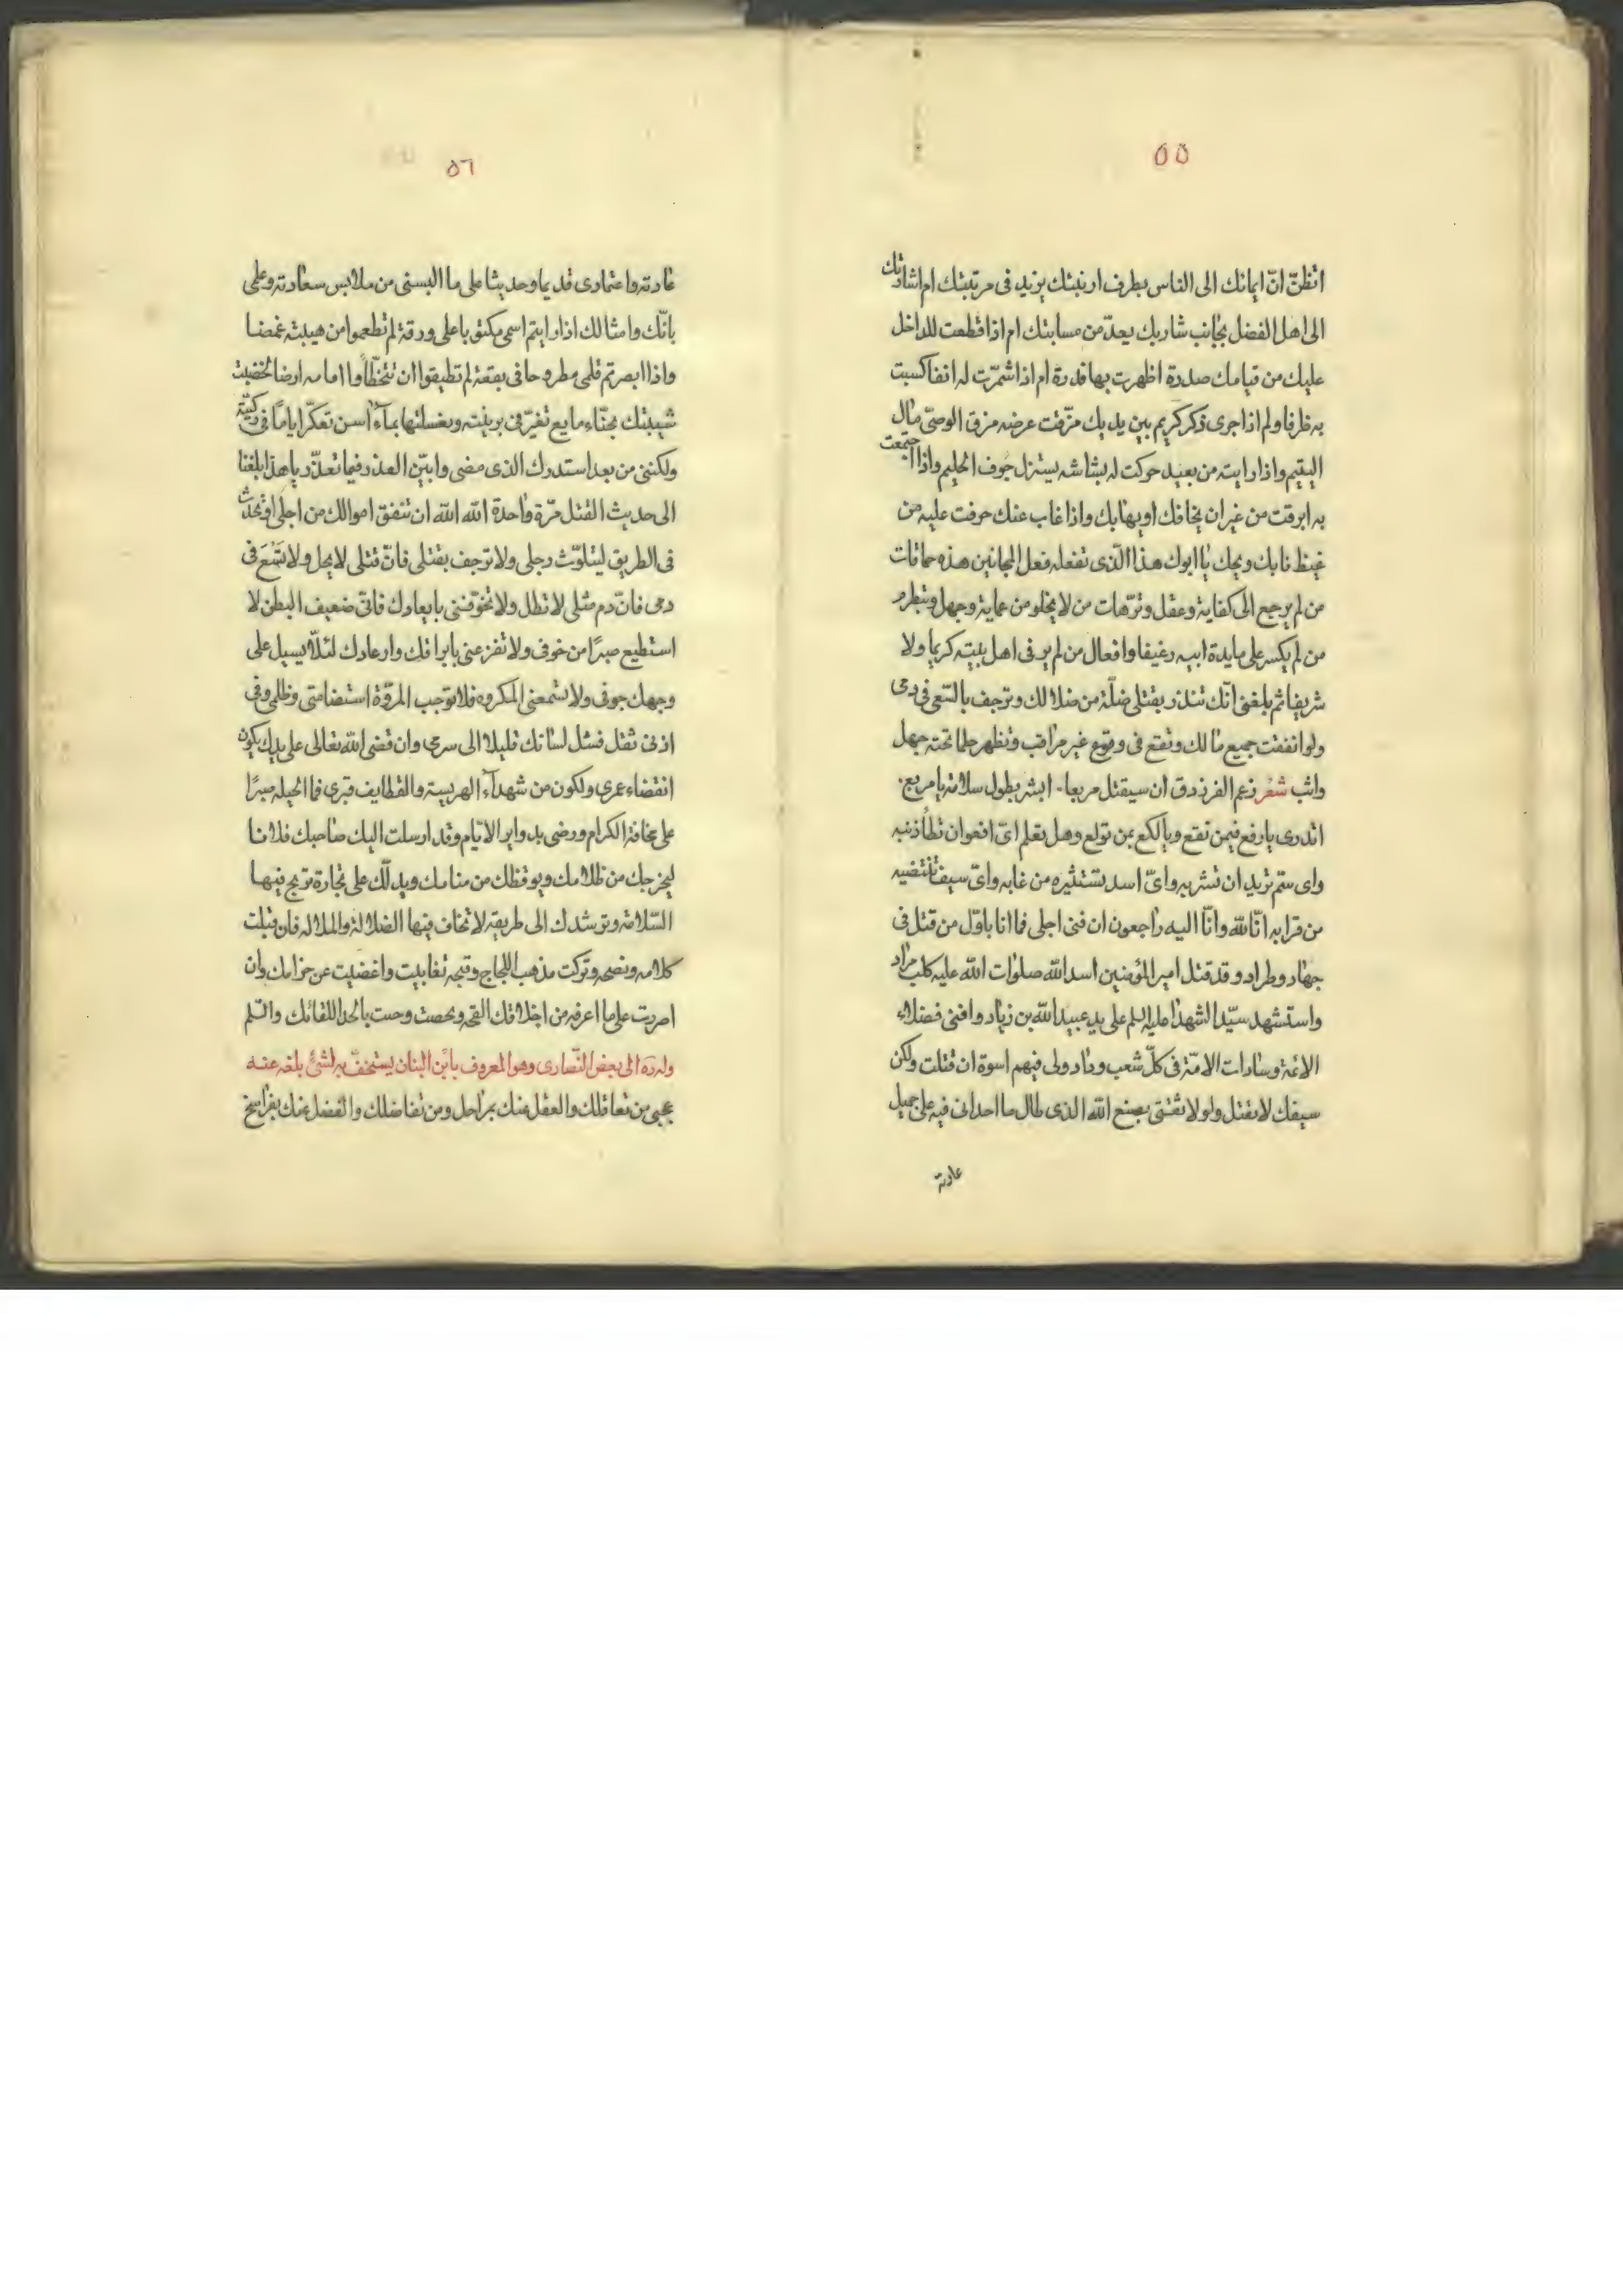 ٥٥
اتظنّ انّ ايمائك الى الناس بطرف ارنبتك يزيد فى مرتبتك ام اشارتك
الى اهل الفضل بجانب شاربك يعدّ من مسابتك ام اذا قطعت للداخل
عليك من قيامك صددة اظهرت بها قدرة ام اذا شمّرت له انفا كسبت
به ظرفا ولم اذا جرى ذكر كريم بين يديك مزّقت عرضه مزق الوصىّ مال
اليتيم واذا رايته من بعيد حركت له بشاشه يستنزل جوف الحليم واذا اجتمعت
به ابرقت من غير ان يخافك او يهابك واذا غاب عنك حرقت عليه من
غيظ نابك ويحك ياابوك هذا الّذى تفعله فعل المجانين هذه حماقات
من لم يرجع الى كفاية وعقل وترّهات من لا يخلو من عماية وجهل
من لم يكسر على مايدة ابيه رغيفا وافعال من لم ير فى اهل بيته كريما ولا
شريفا ثم بلغنى انّك تنذر بقتلى ضلّة من ضلالك وترجف بالسّعى فى دمى
ولو انفقت جميع مالك وتقع فىّ وقوع غير مراقب وتظهر حلما تحته جهل
واثب شعر زعم الفرزدق ان سيقتل مربعا ۰ ابشر بطول سلامة يا مربع۰
اتدرى يا رقع فيمن تقع ويا لكع بمن تولع وهل تعلم اىّ افعوان تطأ ذنبه
واى سمّ تريد ان تشربه واىّ اسد تستثيره من غابه واىّ سيف تنتضيه
من قرابه انّا لله وانّا اليه راجعون ان فنى اجلى فما انا باوّل من قتل فى
جهاد وطراد وقد قتل امير المؤمنين اسد الله صلوات الله عليه كلب مراد
واستشهد سيّد الشهدا عليه السلم على يد عبيد الله بن زياد وافنى فضلاء
الائمة وسادات الامّة فى كلّ شعب وواد ولى فيهم اسوة ان قتلت ولكن
سيفك لا يقتل ولو لا ثقتى بصنع الله الذى طال ما احدانى فيه على جميل
عادته
٥٦
عادته واعتمادى قديما وحديثا على ما البسنى من ملابس سعادته وعلمى
بانّك وامثالك اذا رايتم اسمى مكتوبا على ورقة لم تطعموا من هيبته غمضا
واذا ابصرتم قلمى مطروحا فى بقعة لم تطيقوا ان تتخطّأوا امامه ارضا لخضبت
شيبتك بحنّاء مايع تغيّر فى برنيّته وبغسلتها بمآء اسن تعكّر اياما فى ركيّته
ولكننى من بعد استدرك الذى مضى وابيّن العذر فيما تعذّر ياهذا بلغنا
الى حديث القتل مرّة واحدة الله الله ان تنفق اموالك من اجلى او تحدث
فى الطريق ليتلوّث رجلى ولا ترجف بقتلى فانّ قتلى لا يحل ولا تَسْعَ فى
دمى فانّ دم مثلى لا تطل ولا تخوّفنى بابعادك فانّى ضعيف البطن لا
استطيع صبرًا من خوفى ولا تفزعنى بابراقك وارعادك لئلّا يسيل على
وجهك جوفى ولا تسمعنى المكروه فلا توجب المروّة استضامتى وظلمى وفى
اذنى ثقل فسئل لسانك قليلا الى سرمى وان قضى الله تعالى على يديك يكون
انقضاء عمرى ولكون من شهدآء الهريسة والقطايف قبرى فما الحيله صبرًا
على مخافة الكرام ورضى بدواير الايّام وقد ارسلت اليك صاحبك فلانا
ليخرجك من ظلامك ويوقظك من منامك ويدلّك على تجارة تربح فيها
السّلامة وترشدك الى طريقه لا تخاف فيها الضلالة والملاله فان قبلت
كلامه ونصحه وتركت مذهب اللجاج وقبحه تغابيت واغضيت عن جزامك وان
اصررت على ما اعرفه من اخلاقك القحه وحست بالحد اللقائك والسلم
وله ره الى بعض النّصارى وهو المعروف بابن البنان يستخفّ به لشئ بلغه عنه
عجبى من تعاقلك والعقل عنك بمراحل ومن تفاضلك والفضل عنك بفراسخ